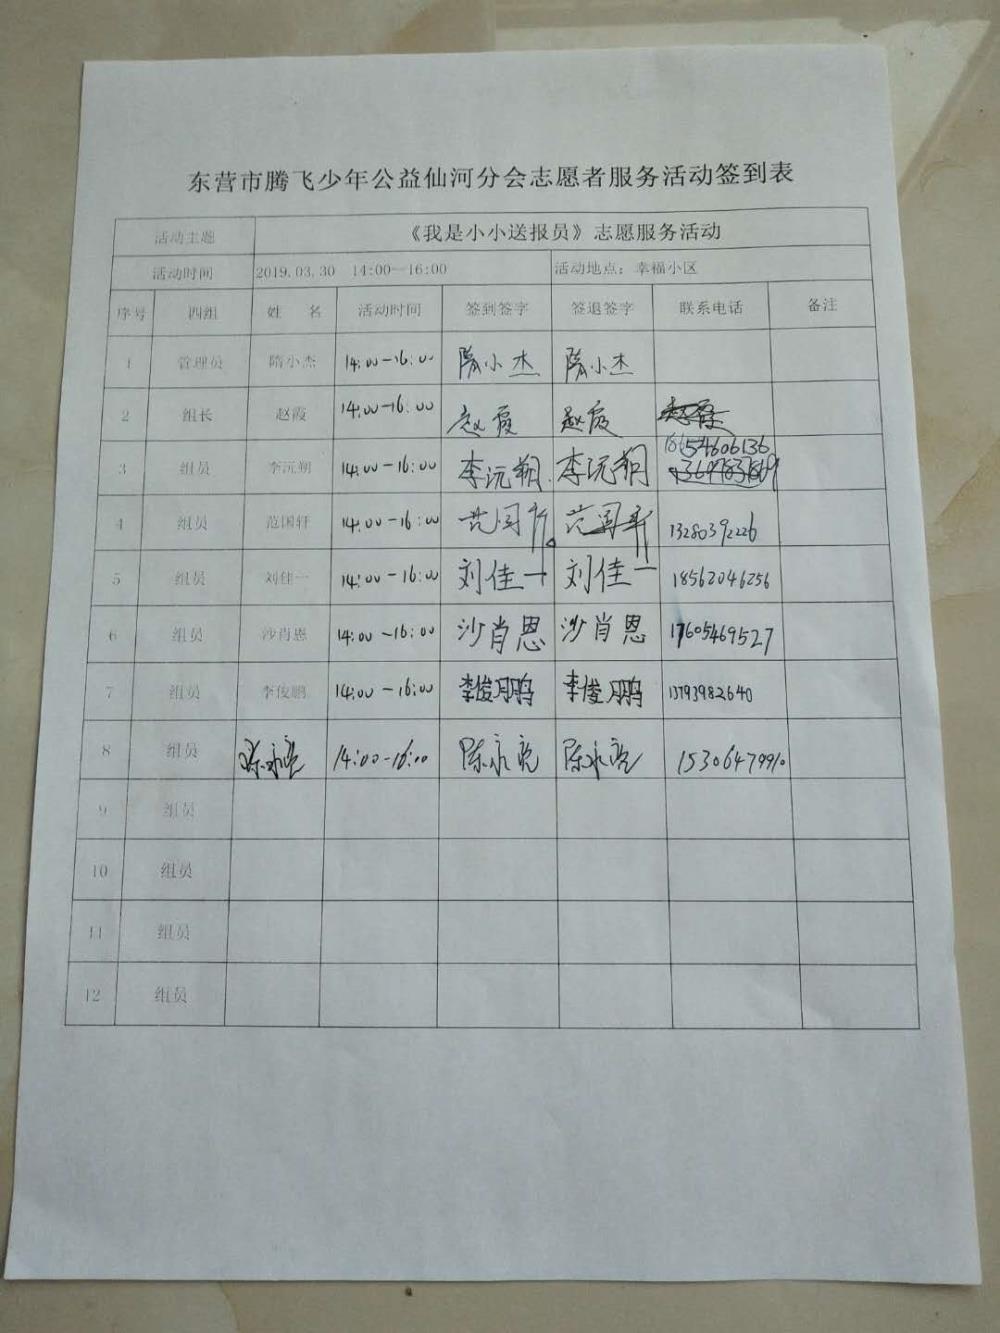 东营市腾飞少年公益仙河分会志愿者服务活动签到表
活动主题 《我是小小送报员》志愿服务活动
活动时间 2019.03.30 14:00—16:00 活动地点：幸福小区
序号 四组 姓 名 活动时间 签到签字 签退签字 联系电话 备注
1 管理员 隋小杰 14:00-16:00 隋小杰 隋小杰
2 组长 赵霞 14:00-16:00 赵霞 赵霞
3 组员 李沅朔 14:00-16:00 李沅朔 李沅朔 18654606136
4 组员 范国轩 14:00-16:00 范国轩 范国轩 13280392226
5 组员 刘佳一 14:00-16:00 刘佳一 刘佳一 18562046256
6 组员 沙肖恩 14:00-16:00 沙肖恩 沙肖恩 17605469527
7 组员 李俊鹏 14:00-16:00 李俊鹏 李俊鹏 13793982640
8 组员 陈永亮 14:00-16:00 陈永亮 陈永亮 15306479910
9 组员
10 组员
11 组员
12 组员